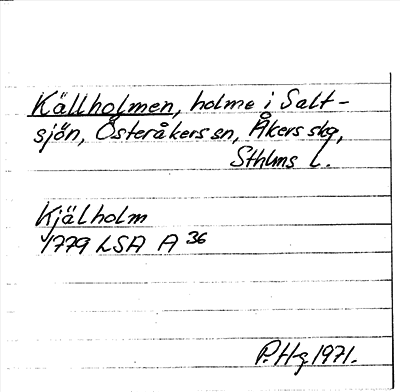 Källholmen, holme i Salt-
sjön, Österåkers sn, Åkers skg,
Sthlms l.
Kjälholm
1779 LSA A 36
P.Hg 1971.